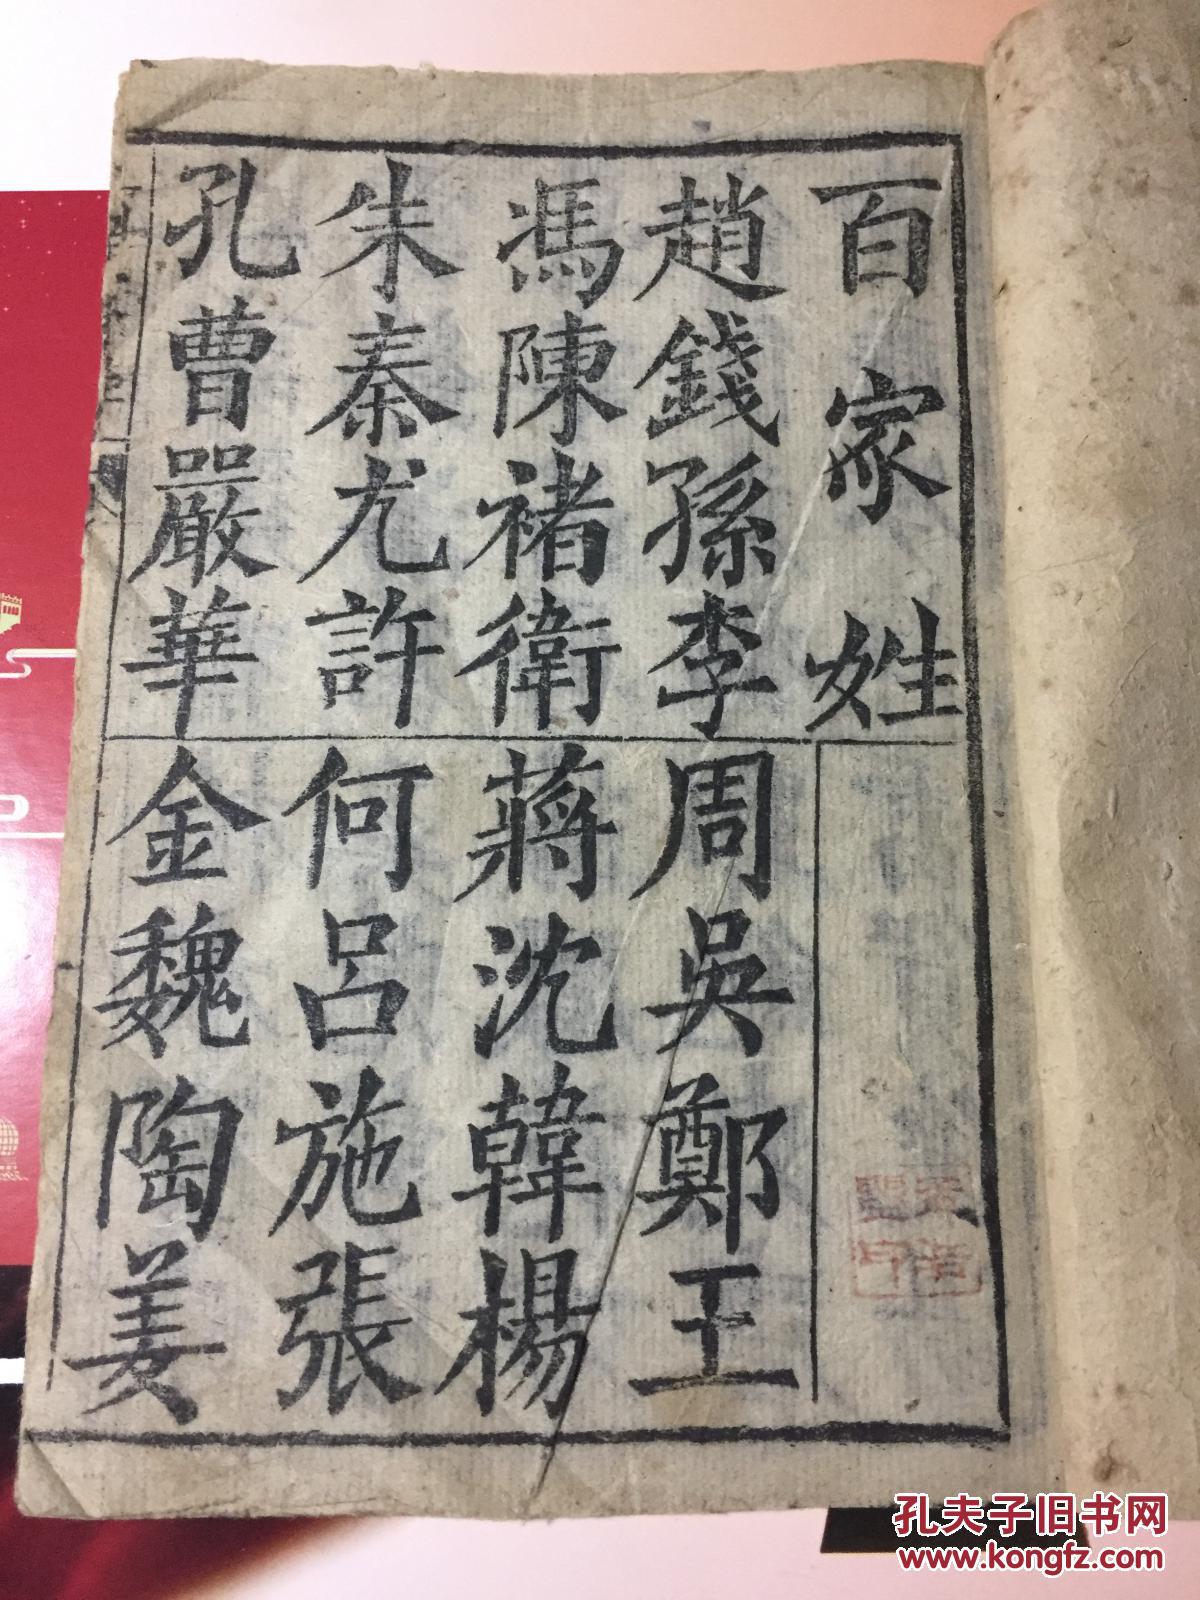 百家姓
趙錢孫李周吳鄭王
馮陳褚衛蔣沈韓楊
朱秦尤許何呂施張
孔曹嚴華金魏陶姜
孔夫子旧书网
www.kongfz.com